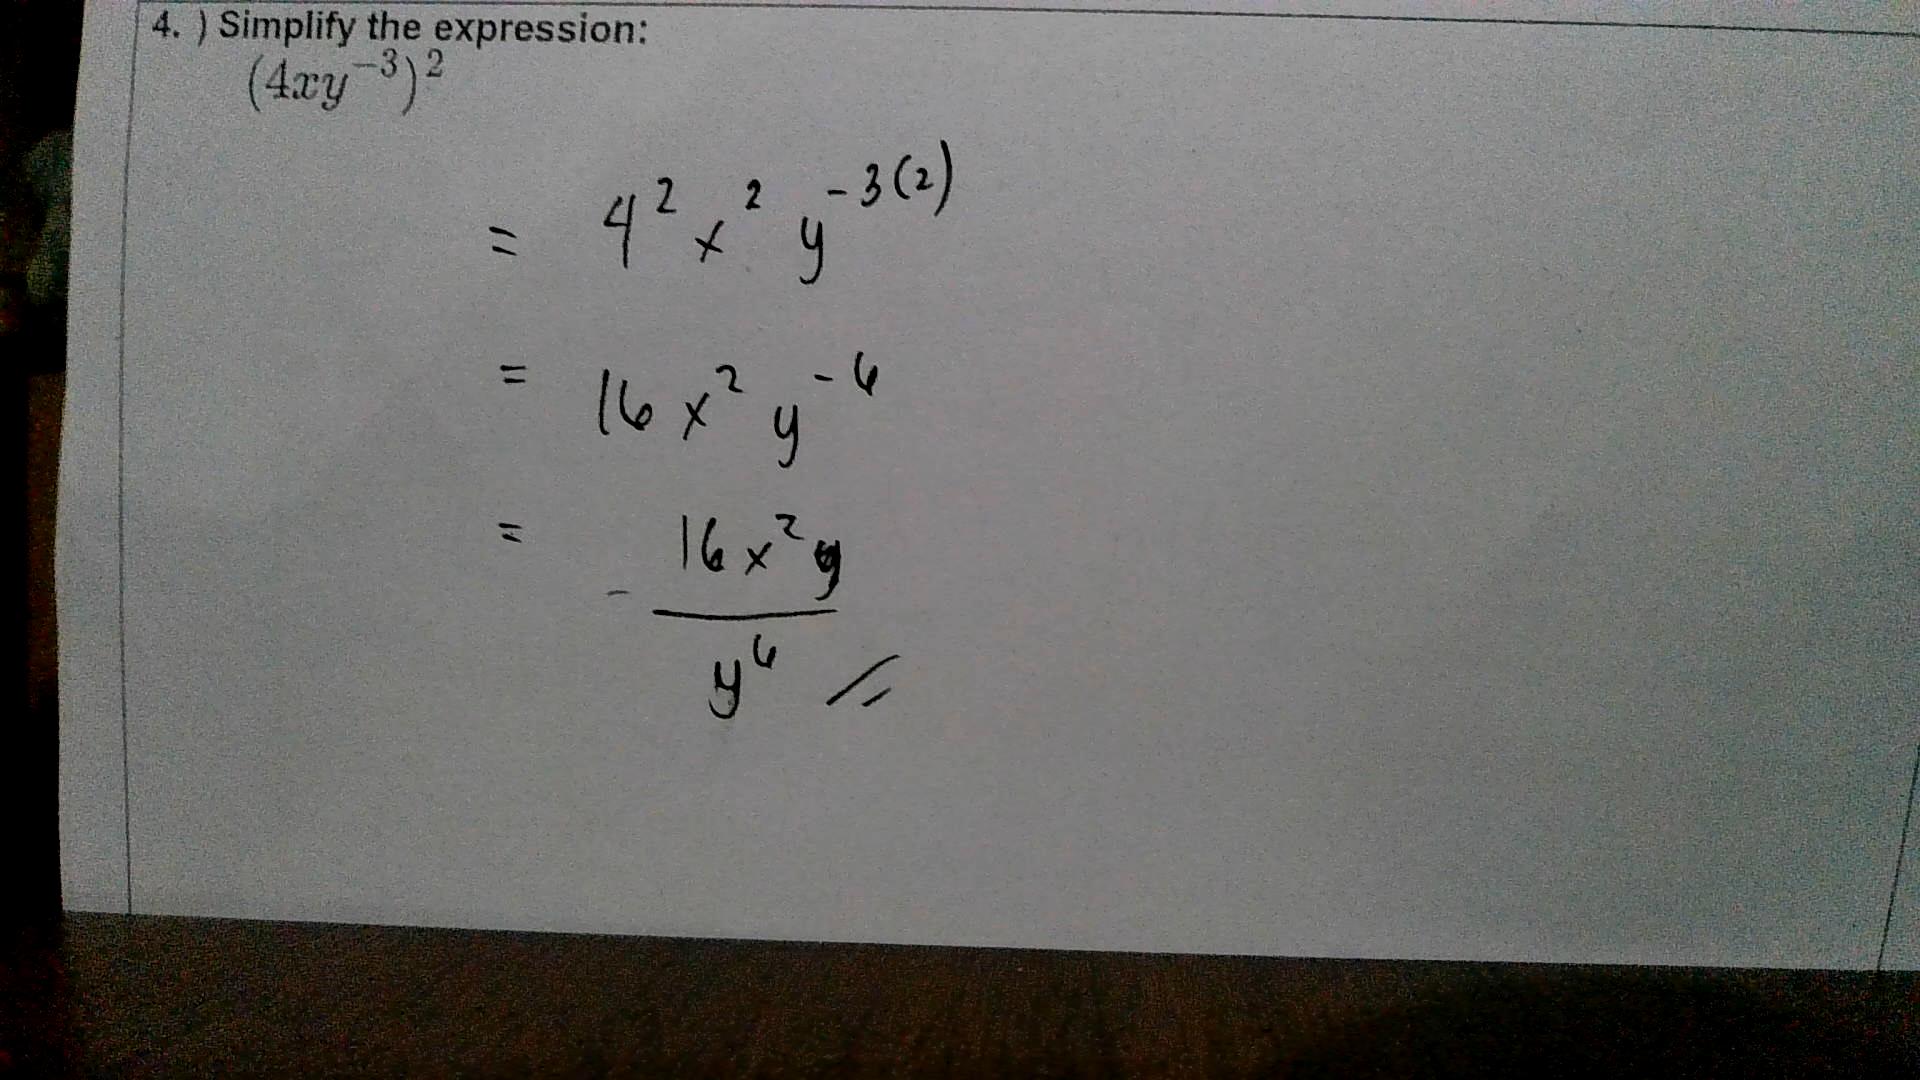 4. ) Simplify the expression:
(4xy⁻³)²
= 4² x² y⁻³⁽²⁾
= 16 x² y⁻⁶
= - 16x² y
y⁶